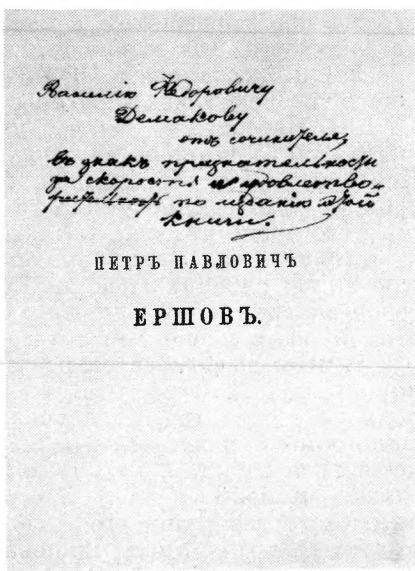 Василію Ѳедоровичу
Демакову
отъ сочинителя,
въ знакъ признательности
за скорость и удовлетво-
рительность по изданію этой
книги.
ПЕТРЪ ПАВЛОВИЧЪ
ЕРШОВЪ.